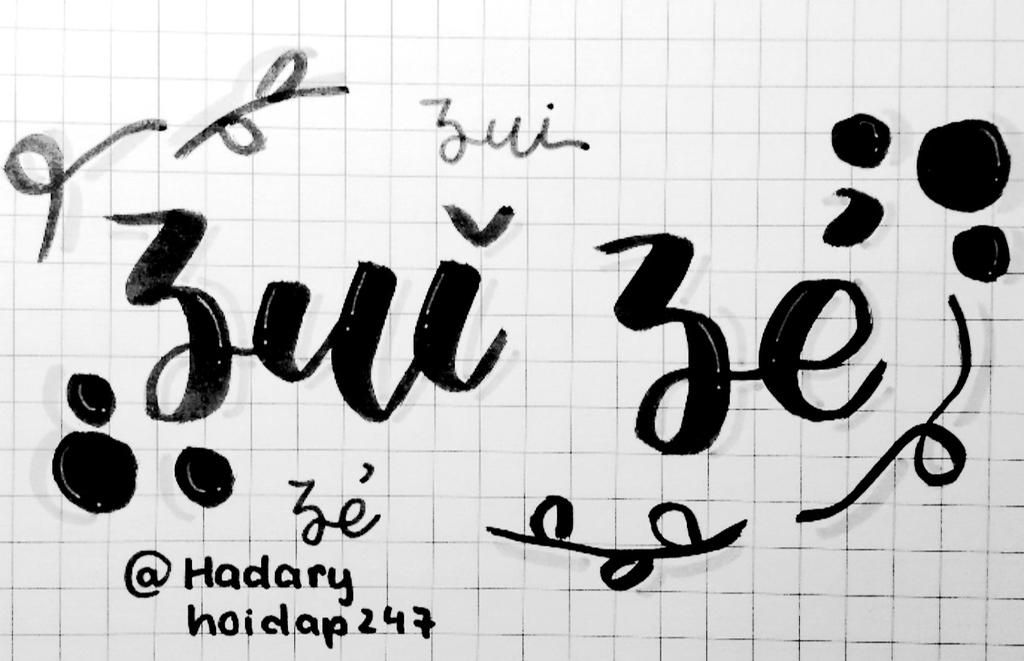 zui
zuĭ zẻ
zé
@Hadary
hoidap247